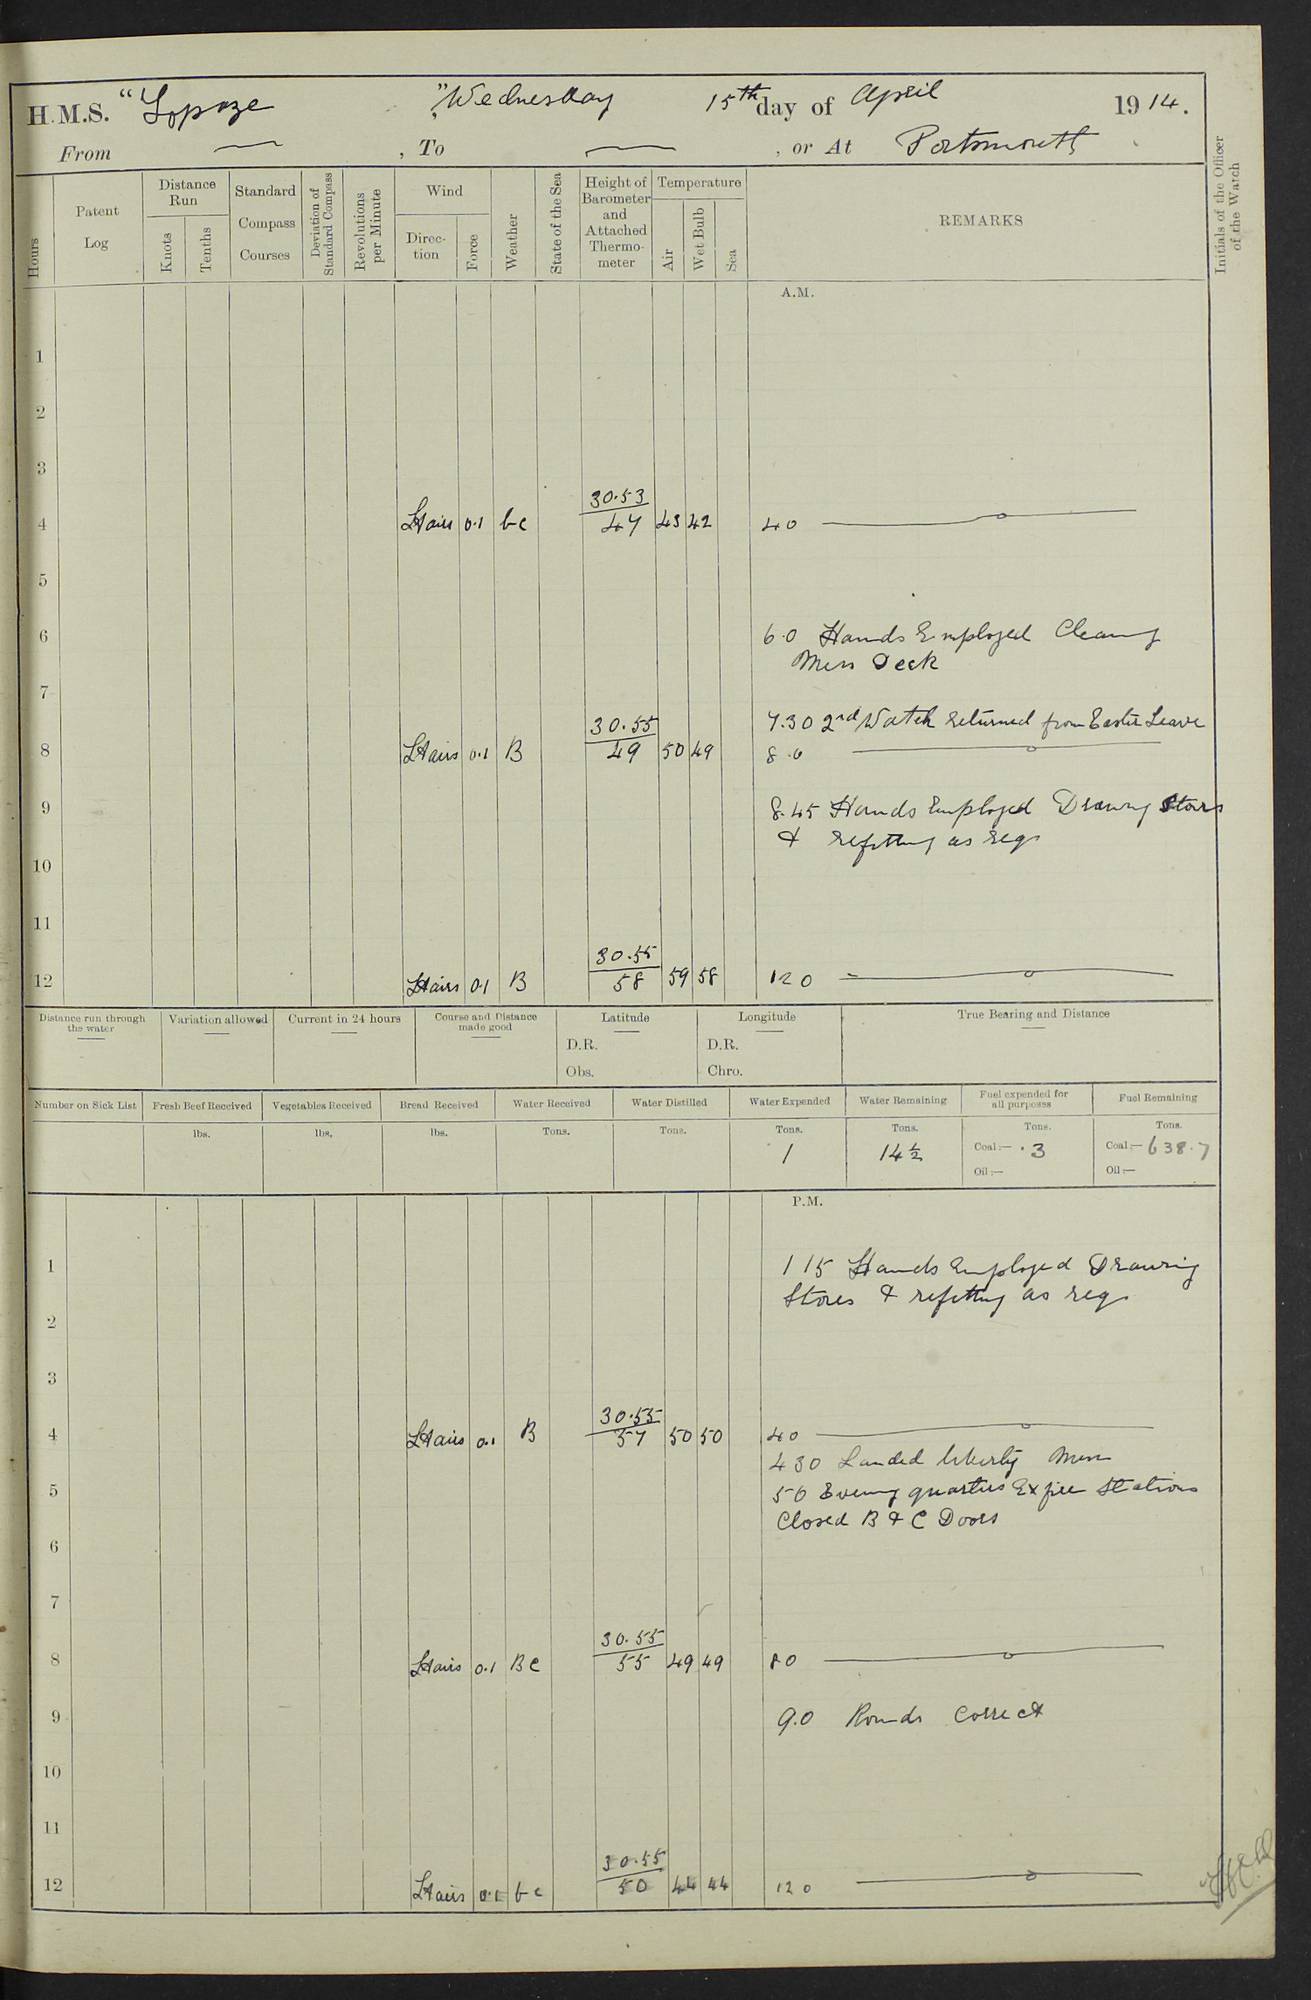 H.M.S. "Topaze" Wednesday 15th day of April 1914.
From — , To — , or At Portsmouth
Hours
Patent Log
Distance Run
Knots
Tenths
Standard Compass Courses
Deviation of Standard Compass
Revolutions per Minute
Wind
Direc-tion
Force
Weather
State of the Sea
Height of Barometer and Attached Thermo-meter
Temperature
Air
Wet Bulb
Sea
REMARKS
Initials of the Officer of the Watch
A.M.
1
2
3
30.53
4 Lt airs 0.1 bc 47 43 42 4 0
5
6 6.0 Hands Employed Cleaning
Mess Deck
7
7.30 2nd Watch returned from Easter Leave
30.55
8 Lt airs 0.1 B 49 50 49 8.0
9 8.45 Hands Employed Drawing Stores
& refitting as req
10
11
30.55
12 Lt airs 0.1 B 58 59 58 12 0
Distance run through the water
Variation allowed
Current in 24 hours
Course and Distance made good
Latitude
D.R.
Obs.
Longitude
D.R.
Chro.
True Bearing and Distance
Number on Sick List
Fresh Beef Received
lbs.
Vegetables Received
lbs.
Bread Received
lbs.
Water Received
Tons.
Water Distilled
Tons.
Water Expended
Tons.
1
Water Remaining
Tons.
14 ½
Fuel expended for all purposes
Tons.
Coal:— .3
Oil:—
Fuel Remaining
Tons.
Coal:— 638.7
Oil:—
P.M.
1 1 15 Hands Employed Drawing
Stores & refitting as req
2
3
30.55
4 Lt airs 0.1 B 57 50 50 4 0
4 30 Landed liberty Men
5 5 0 Evening quarters Ex fire Stations
Closed B & C Doors
6
7
30.55
8 Lt airs 0.1 BC 55 49 49 8 0
9 9.0 Rounds Correct
10
11
30.55
12 Lt airs 0.1 bc 50 44 44 12 0